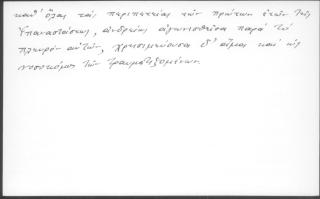 καθ' ὅλας τάς περιπετείας τῶν πρώτων ἐτῶν τῆς
Ἐπαναστάσεως, ἀνδρείως ἀγωνισθεῖσα παρά τό
πλευρόν αὐτῶν, χρησιμεύουσα δ' ἅμα καί ὡς
νοσοκόμος τῶν τραυματιζομένων.